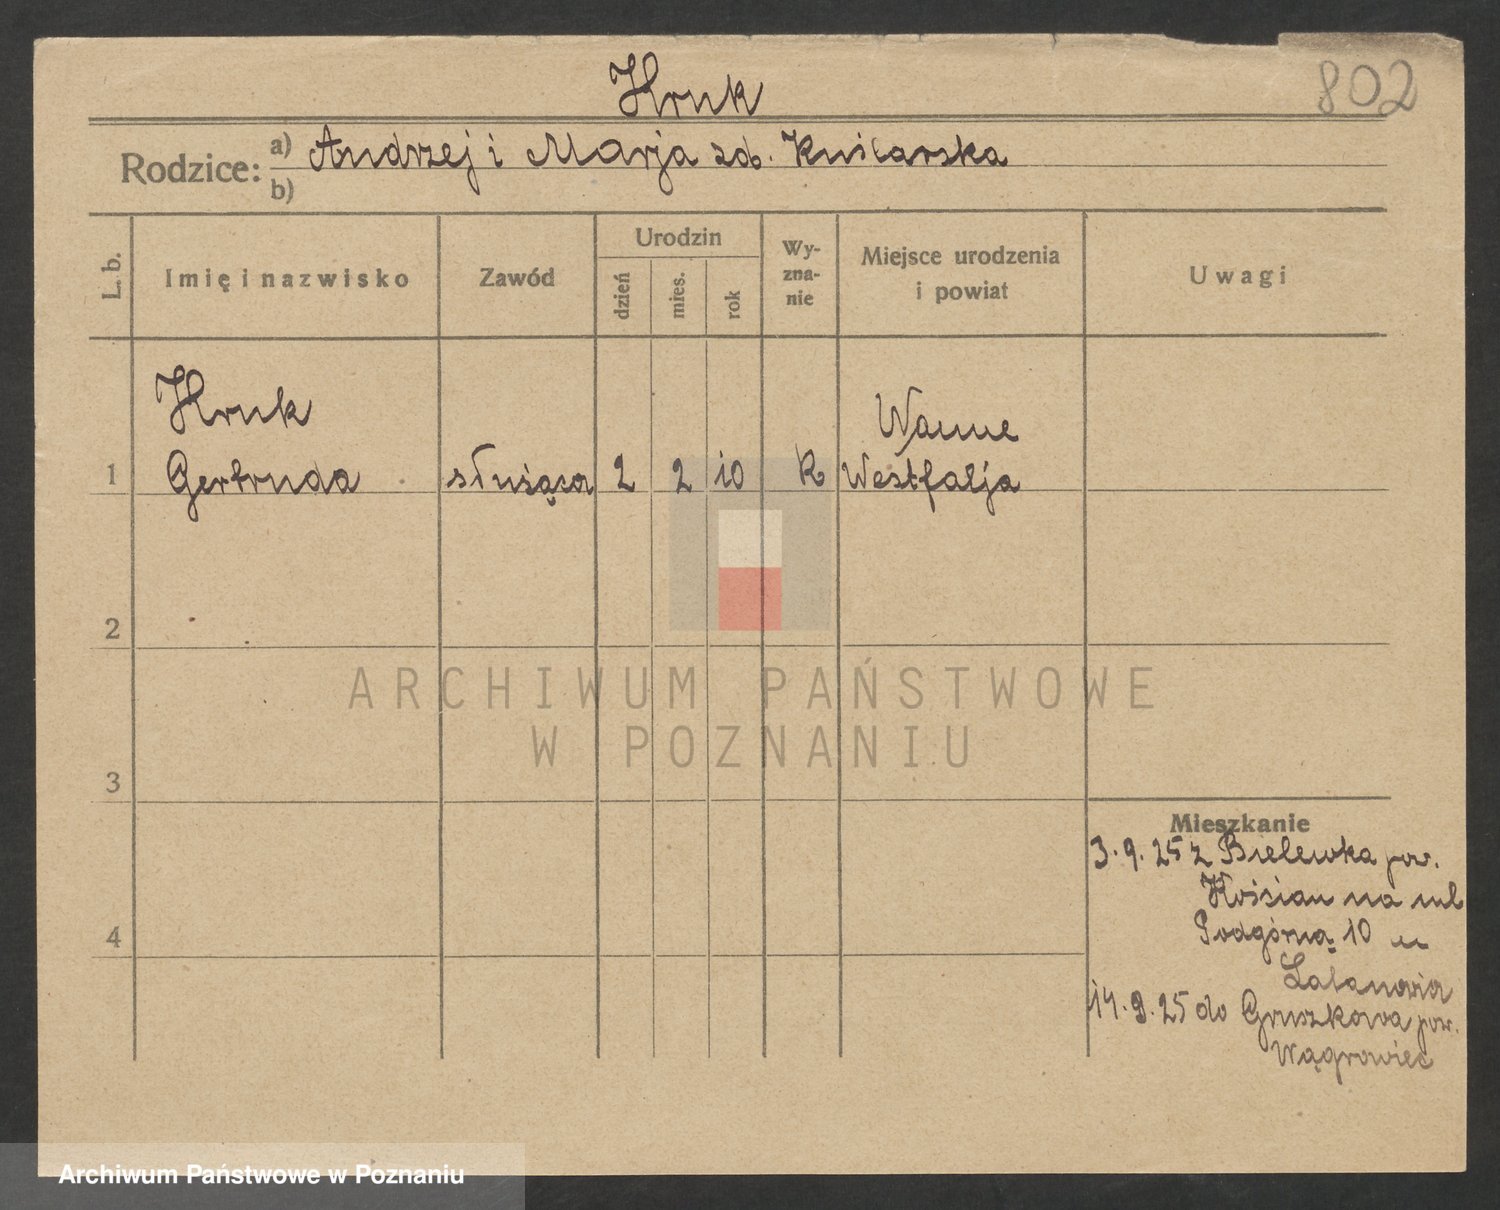 802
Kruk
Rodzice: a) Andrzej i Marja zd.
b)
L. b.
Imię i nazwisko
Zawód
Urodzin
dzień
mies.
rok
Wy-
zna-
nie
Miejsce urodzenia
i powiat
Uwagi
Kruk
Wanne
1 Gertruda służąca 2 2 10 K Westfalja
2
ARCHIWUM PAŃSTWOWE
W POZNANIU
3
Mieszkanie
3.9.25 z Bielewka pow.
Kościan na ul
4
Podgórną 10 u
14.9.25 do Gruszkowa pow.
Wągrowiec
Archiwum Państwowe w Poznaniu